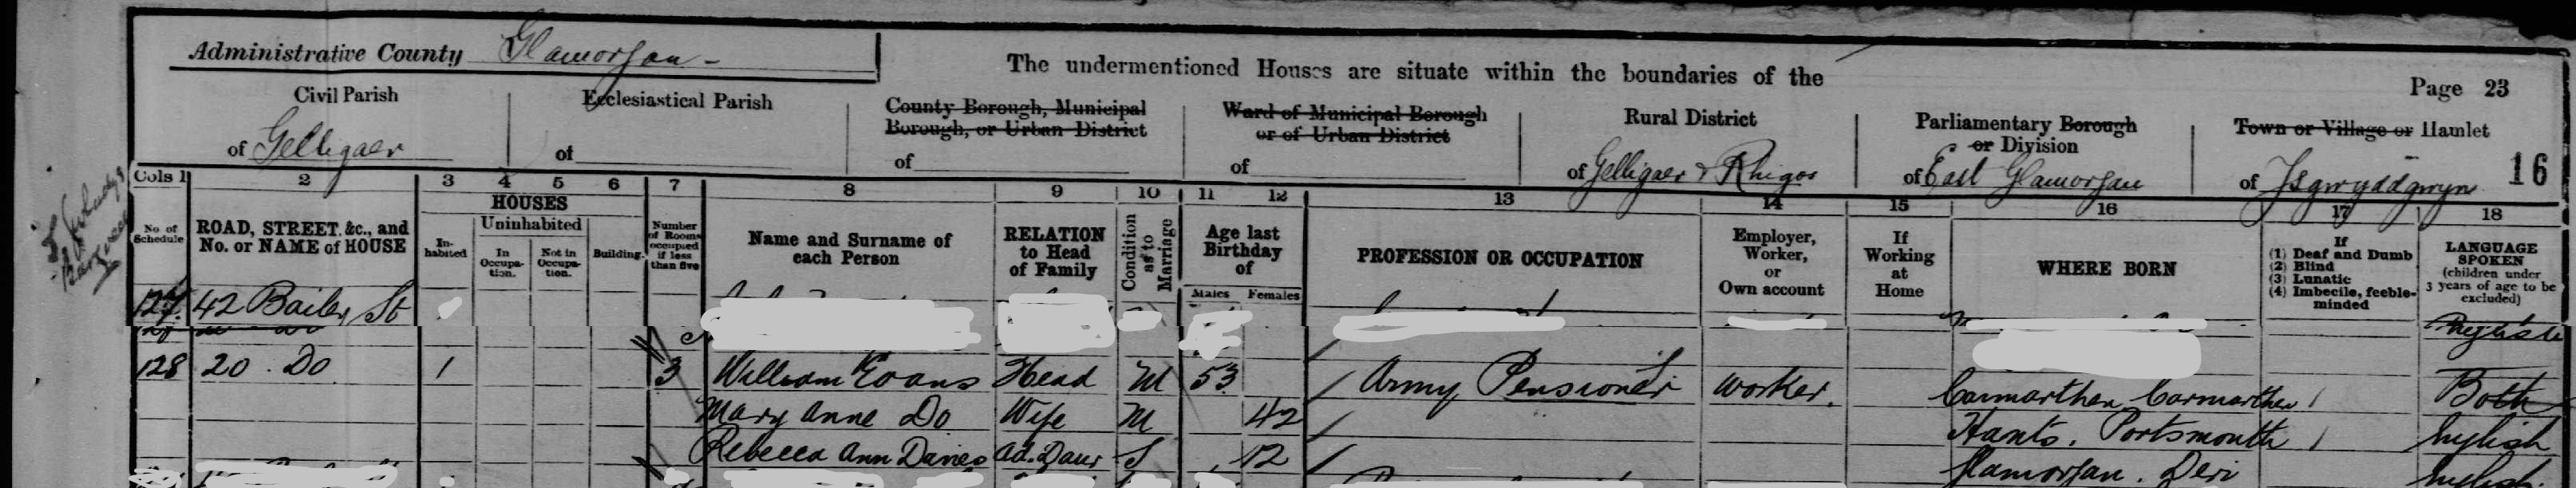 Administrative County Glamorgan -
The undermentioned Houses are situate within the boundaries of the
Page 23
Civil Parish
of Gelligaer
Ecclesiastical Parish
of
County Borough, Municipal
Borough, or Urban District
of
Ward of Municipal Borough
or of Urban District
of
Rural District
of Gelligaer & Rhigos
Parliamentary Borough
or Division
of East Glamorgan
Town or Village or Hamlet
of Isgwyddgwyn
16
Cols 1 2 3 4 5 6 7 8 9 10 11 12 13 14 15 16 17 18
No. of
Schedule
ROAD, STREET, &c., and
No. or NAME of HOUSE
HOUSES
In-
habited
Uninhabited
In
Occupa-
tion.
Not in
Occupa-
tion.
Building.
Number
of Rooms
occupied
if less
than five
Name and Surname of
each Person
RELATION
to Head
of Family
Condition
as to
Marriage
Age last
Birthday
of
Males Females
PROFESSION OR OCCUPATION
Employer,
Worker,
or
Own account
If
Working
at
Home
WHERE BORN
If
(1) Deaf and Dumb
(2) Blind
(3) Lunatic
(4) Imbecile, feeble-
minded
LANGUAGE
SPOKEN
(children under
3 years of age to be
excluded)
127 42 Bailey St
English
128 20 Do 1 3 William Evans Head M 53 Army Pensioner worker. Carmarthen Carmarthen Both
Mary Anne Do Wife M 42 Hants. Portsmouth English
Rebecca Ann Davies ad. Daur S 12 Glamorgan. Deri English